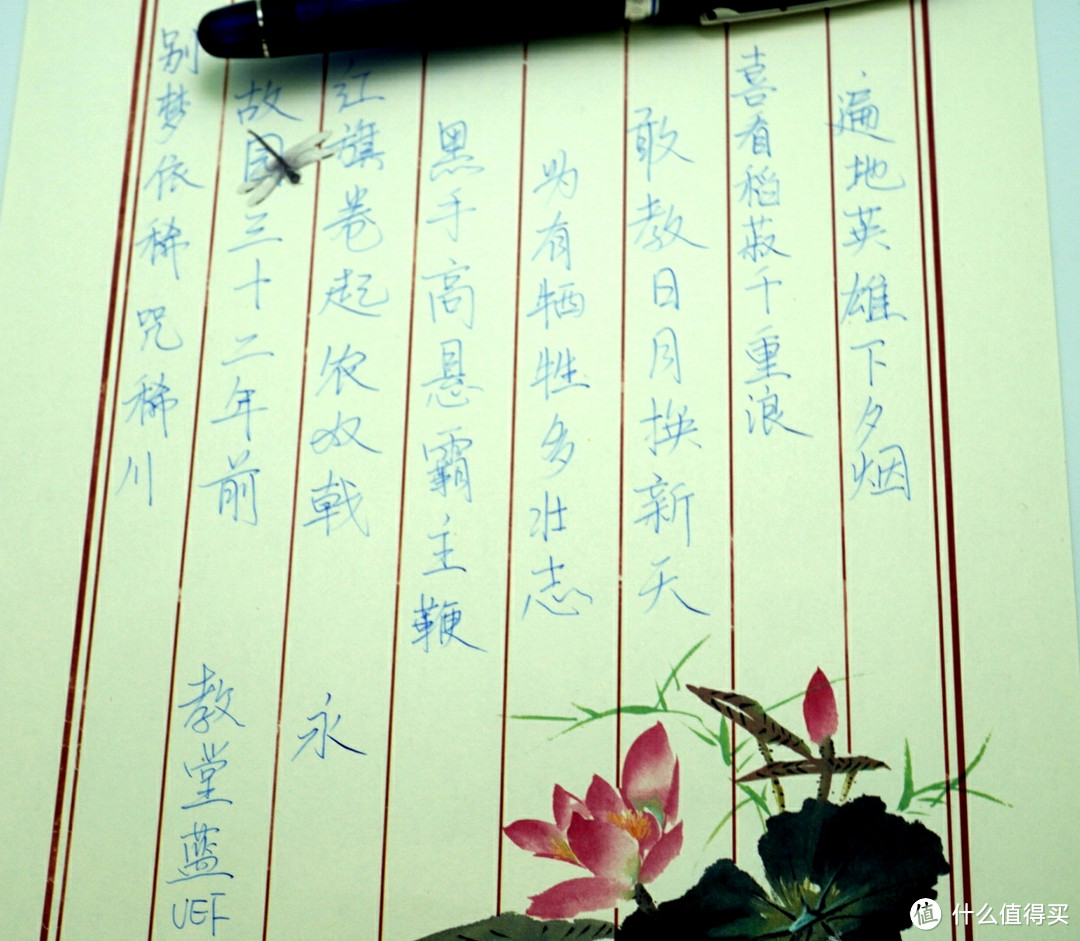 别梦依稀咒稀川
故三十二年前
红旗卷起农奴戟
黑手高悬霸主鞭
为有牺牲多壮志
敢教日月换新天
喜看稻菽千重浪
遍地英雄下夕烟
永
教堂蓝UEF
值 什么值得买